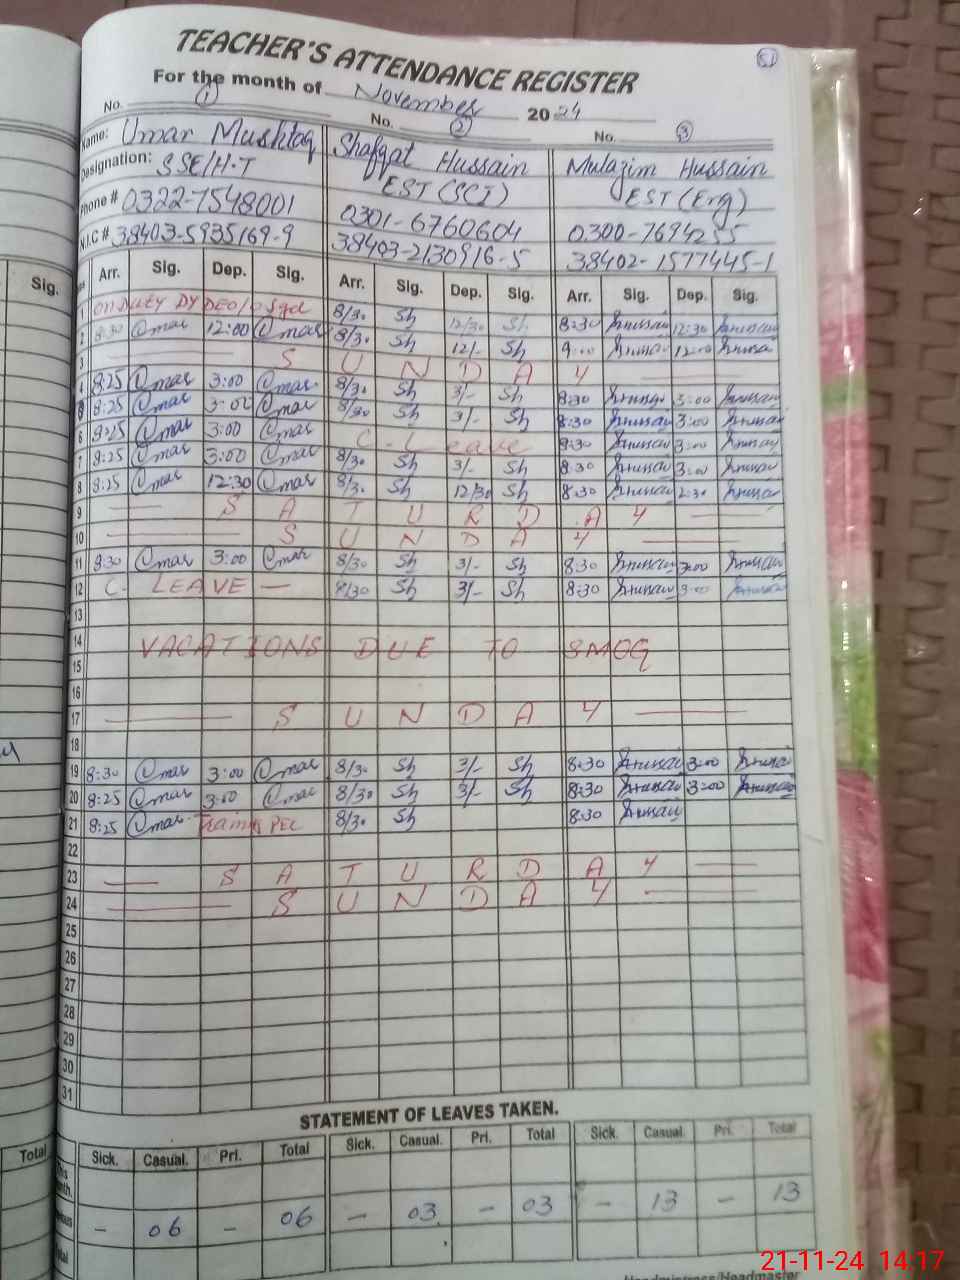 51
TEACHER'S ATTENDANCE REGISTER
For the month of November 2024
No. 1 No. 2 No. 3
Name: Umar Mushtaq Shafqat Hussain Mulazim Hussain
Designation: SSE/H.T EST (SCI) EST (Eng)
Phone # 0322-7548001 0301-6760604 0300-7694255
N.I.C # 38403-5935169-9 38403-2130916-5 38402-1577445-1
Sig. Arr. Sig. Dep. Sig. Arr. Sig. Dep. Sig. Arr. Sig. Dep. Sig.
1 on Duty by DEO/o Sgd 8/30 Sh 12/30 Sh 8:30 12:30
2 8:30 Umar 12:00 Umar 8/30 Sh 12/- Sh 9:00 12:00
3 S U N D A Y
4 8:25 Umar 3:00 Umar 8/30 Sh 3/- Sh 8:30 3:00
5 8:25 Umar 3:00 Umar 8/30 Sh 3/- Sh 8:30 3:00
6 8:25 Umar 3:00 Umar C-Leave 8:30 3:00
7 8:25 Umar 3:00 Umar 8/30 Sh 3/- Sh 8:30 3:00
8 8:25 Umar 12:30 Umar 8/30 Sh 12/30 Sh 8:30 2:30
9 S A T U R D A Y
10 S U N D A Y
11 8:30 Umar 3:00 Umar 8/30 Sh 3/- Sh 8:30 3:00
12 C- LEAVE - 8/30 Sh 3/- Sh 8:30 3:00
13
14 VACATIONS DUE TO SMOG
15
16
17 S U N D A Y
18
19 8:30 Umar 3:00 Umar 8/30 Sh 3/- Sh 8:30 3:00
20 8:25 Umar 3:00 Umar 8/30 Sh 3/- Sh 8:30 3:00
21 8:25 Umar PEC 8/30 Sh 8:30
22
23 S A T U R D A Y
24 S U N D A Y
25
26
27
28
29
30
31
STATEMENT OF LEAVES TAKEN.
Total Sick. Casual. Pri. Total Sick. Casual. Pri. Total Sick. Casual. Pri. Total
- 06 - 06 - 03 - 03 - 13 - 13
Headmistress/Headmaster
21-11-24 14:17